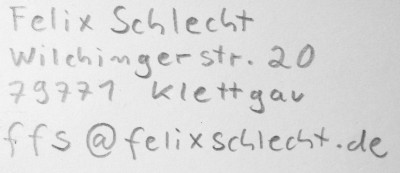 Felix Schlecht
Wilchingerstr. 20
79771 Klettgau
ffs@felixschlecht.de